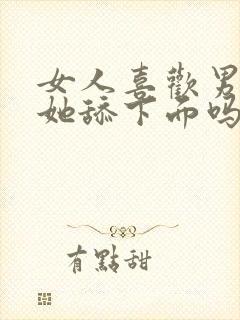 女人喜歡男
她舔下面吗
有點甜